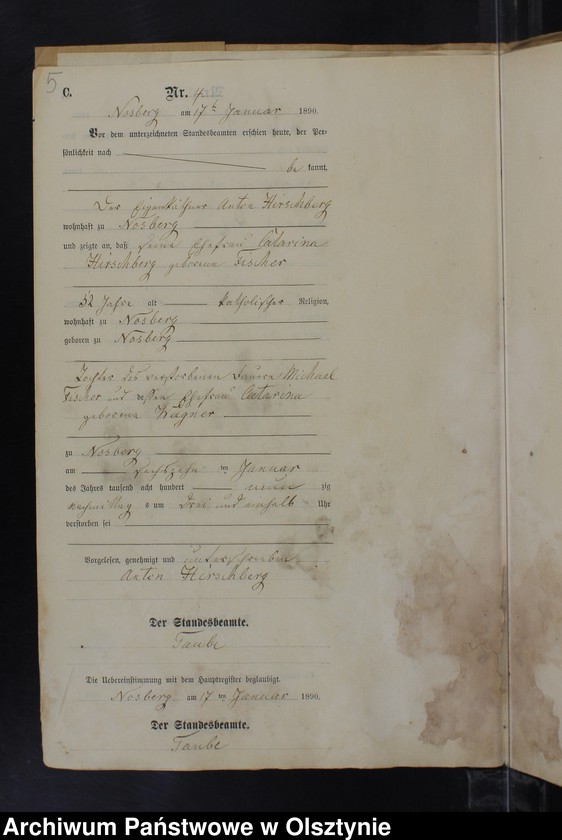 5
C.
Nr. 4
Nosberg am 17ten Januar 1890.
Vor dem unterzeichneten Standesbeamten erschien heute, der Per-
sönlichkeit nach
be kannt,
Der Eigenkäthner Anton Hirschberg
wohnhaft zu Nosberg
und zeigte an, daß seine Ehefrau Catarina
Hirschberg geborene Fischer
52 Jahre alt katholischer Religion,
wohnhaft zu Nosberg
geboren zu Nosberg
Tochter des verstorbenen Bauern Michael
Fischer und Ehefrau Catarina
geborene Wagner
zu Nosberg
am sechszehn ten Januar
des Jahres tausend acht hundert neun zig
nachmittag s um Drei und einhalb Uhr
verstorben sei
Vorgelesen, genehmigt und unterschrieben
Anton Hirschberg
Der Standesbeamte.
Taube
Die Uebereinstimmung mit dem Hauptregister beglaubigt.
Nosberg am 17 ten Januar 1890.
Der Standesbeamte.
Taube
Archiwum Państwowe w Olsztynie